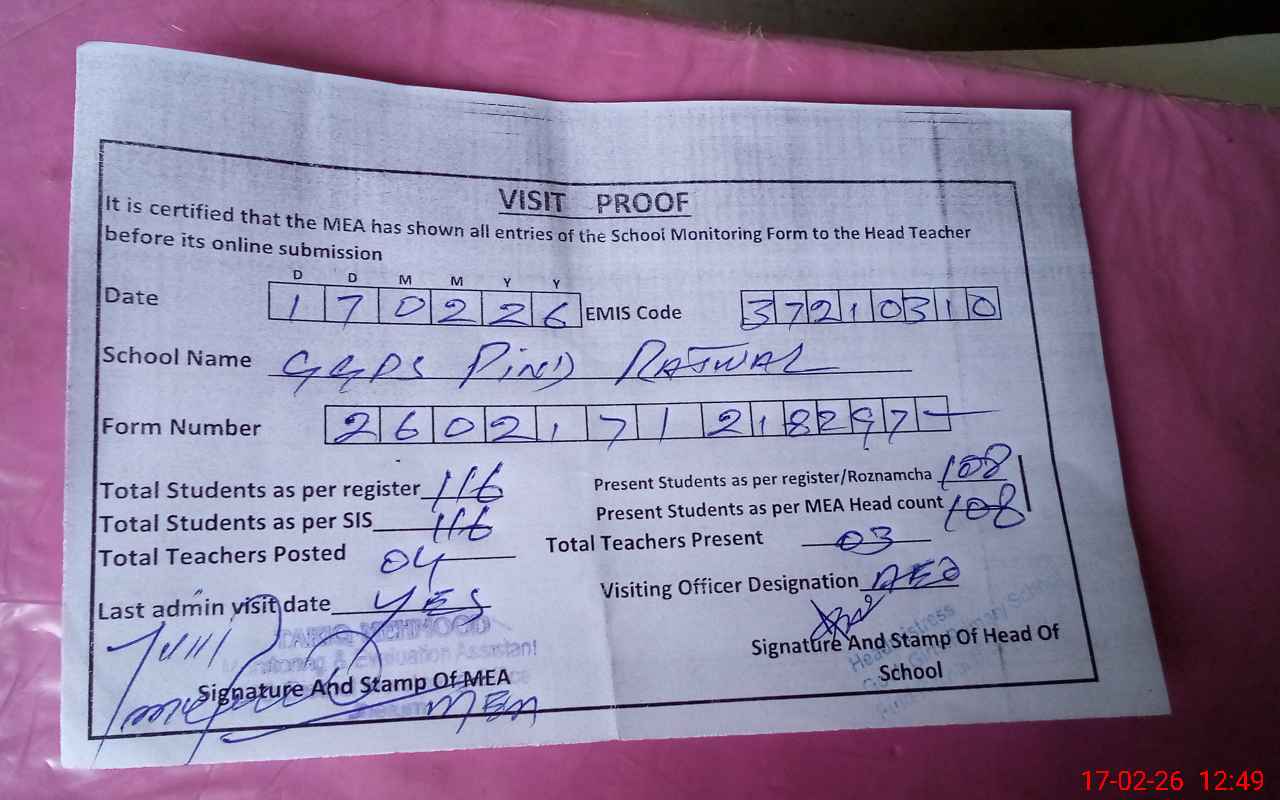 VISIT PROOF
It is certified that the MEA has shown all entries of the School Monitoring Form to the Head Teacher
before its online submission
D D M M Y Y
Date 1 7 0 2 2 6 EMIS Code 3 7 2 1 0 3 1 0
School Name GGPS PIND RAJWAL
Form Number 2 6 0 2 1 7 1 2 1 8 2 9 7 -
Total Students as per register 116 Present Students as per register/Roznamcha 108
Total Students as per SIS 116 Present Students as per MEA Head count 108
Total Teachers Posted 04 Total Teachers Present 03
Last admin visit date YES Visiting Officer Designation AEO
TARIQ MEHMOOD
Monitoring & Evaluation Assistant
Signature And Stamp Of MEA
MEA
Signature And Stamp Of Head Of
School
Headmistress
17-02-26 12:49